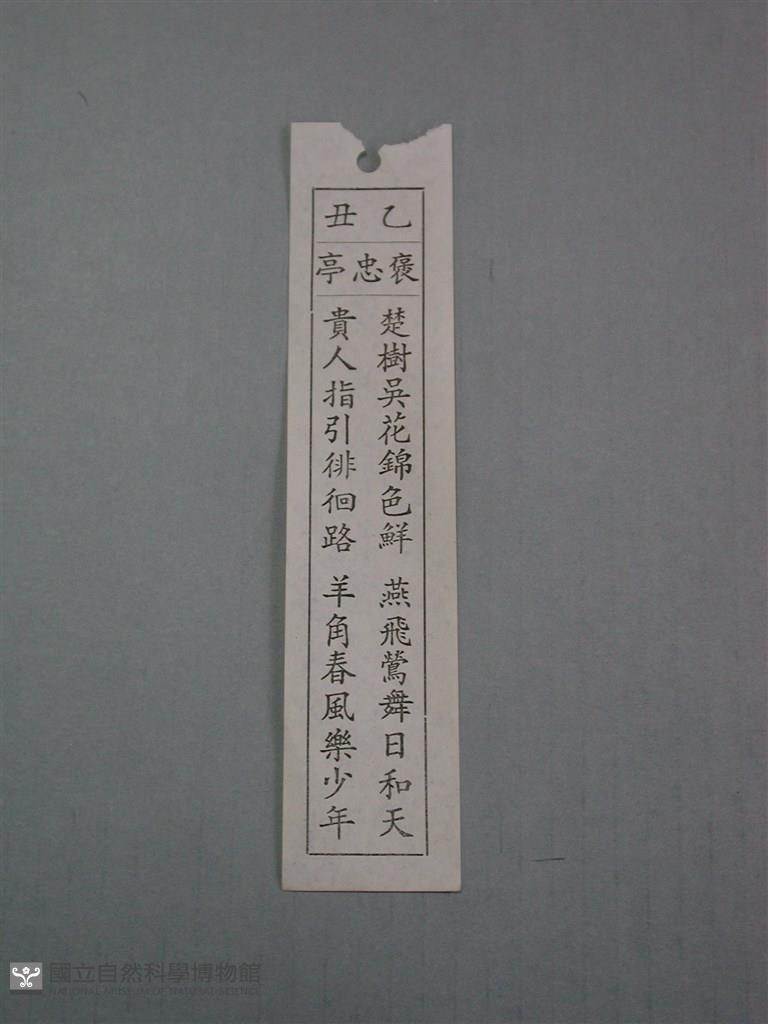 乙丑
褒忠亭
楚樹吳花錦色鮮 燕飛鶯舞日和天
貴人指引徘徊路 羊角春風樂少年
國立自然科學博物館
NATIONAL MUSEUM OF NATURAL SCIENCE